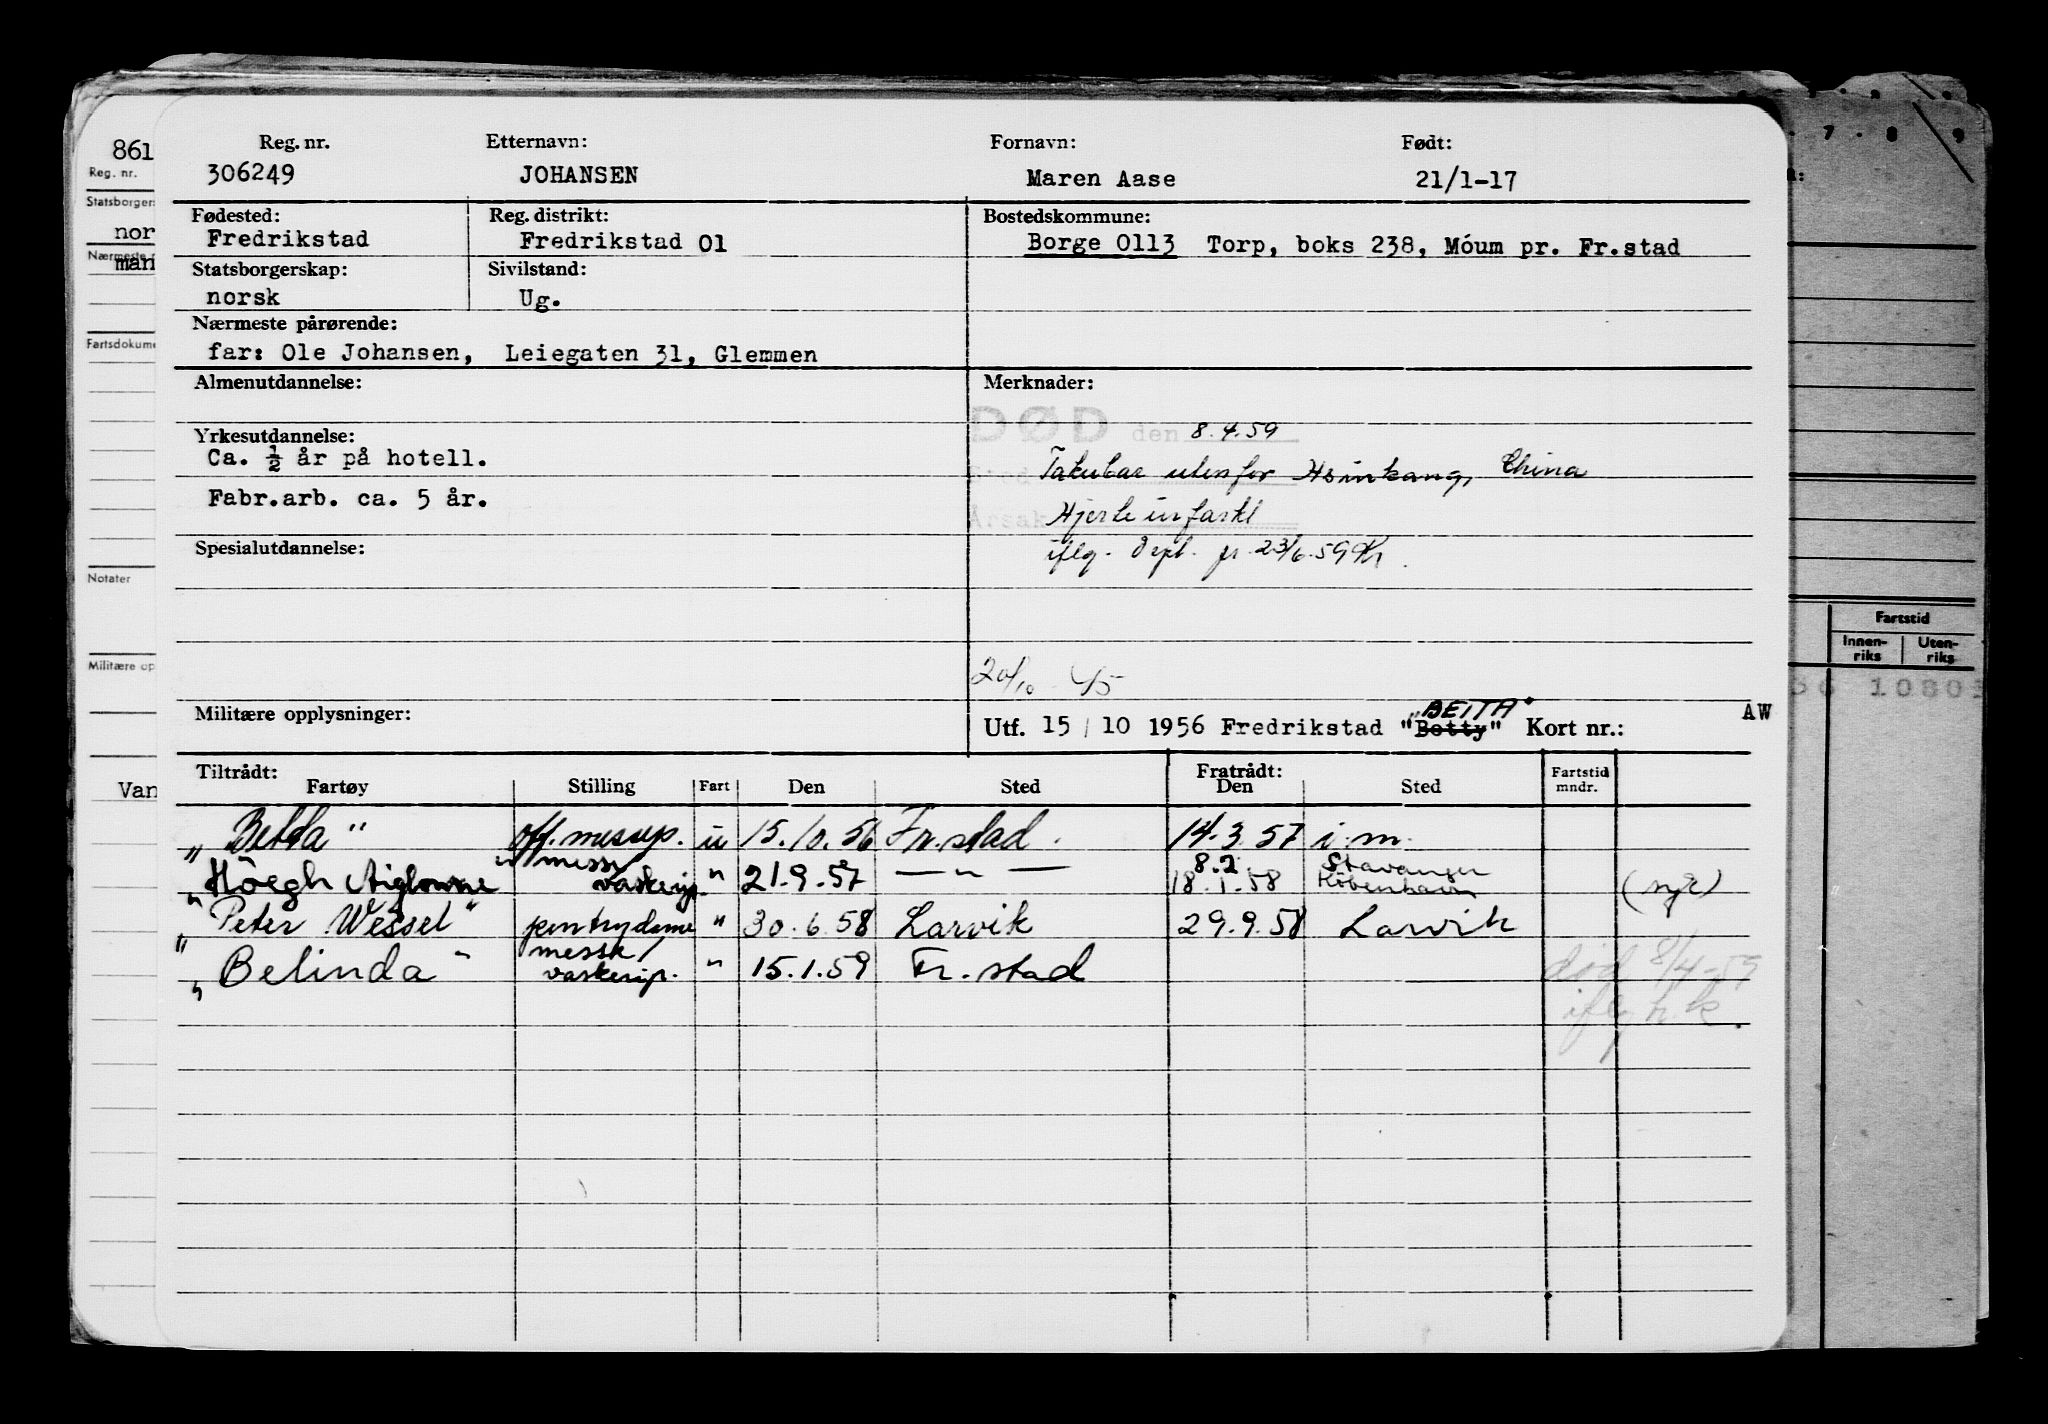 Reg. nr. Etternavn: Fornavn: Født:
306249 JOHANSEN Maren Aase 21/1-17
Fødested: Reg. distrikt: Bostedskommune:
Fredrikstad Fredrikstad 01 Borge 0113 Torp, boks 238, Móum pr. Fr.stad
Statsborgerskap: Sivilstand:
norsk Ug.
Nærmeste pårørende:
far: Ole Johansen, Leiegaten 31, Glemmen
Almenutdannelse: Merknader:
DØD den 8.4.59
Yrkesutdannelse:
Ca. ½ år på hotell.
Takubar utenfor Hsinkang, China
Fabr.arb. ca. 5 år.
Årsak Hjerteinfarkt
Spesialutdannelse:
iflg. Dept. fr. 23/6.59
20/10 45
Militære opplysninger:
Utf. 15/10 1956 Fredrikstad "Betty" "BEITA" Kort nr.: AW
Tiltrådt: Fratrådt:
Fartøy Stilling Fart Den Sted Den Sted Fartstid mndr.
"Beita" off.messep. u 15.10.56 Fr.stad. 14.3.57 i.m.
8.2 Stavanger
"Höegh Aiglonne" messe/vaskerip. " 21.9.57 — " — 18.1.58 København
"Peter Wessel" pentrydame " 30.6.58 Larvik 29.9.58 Larvik
"Belinda" messe/vaskerip. " 15.1.59 Fr.stad død 8/4-59
iflg h.k.
861
Reg. nr.
Statsborgers
nor
Nærmeste
man
Fartsdokume
Notater
Militære op
Van
7 . 8 . 9
Fartstid
Innen-riks Uten-riks